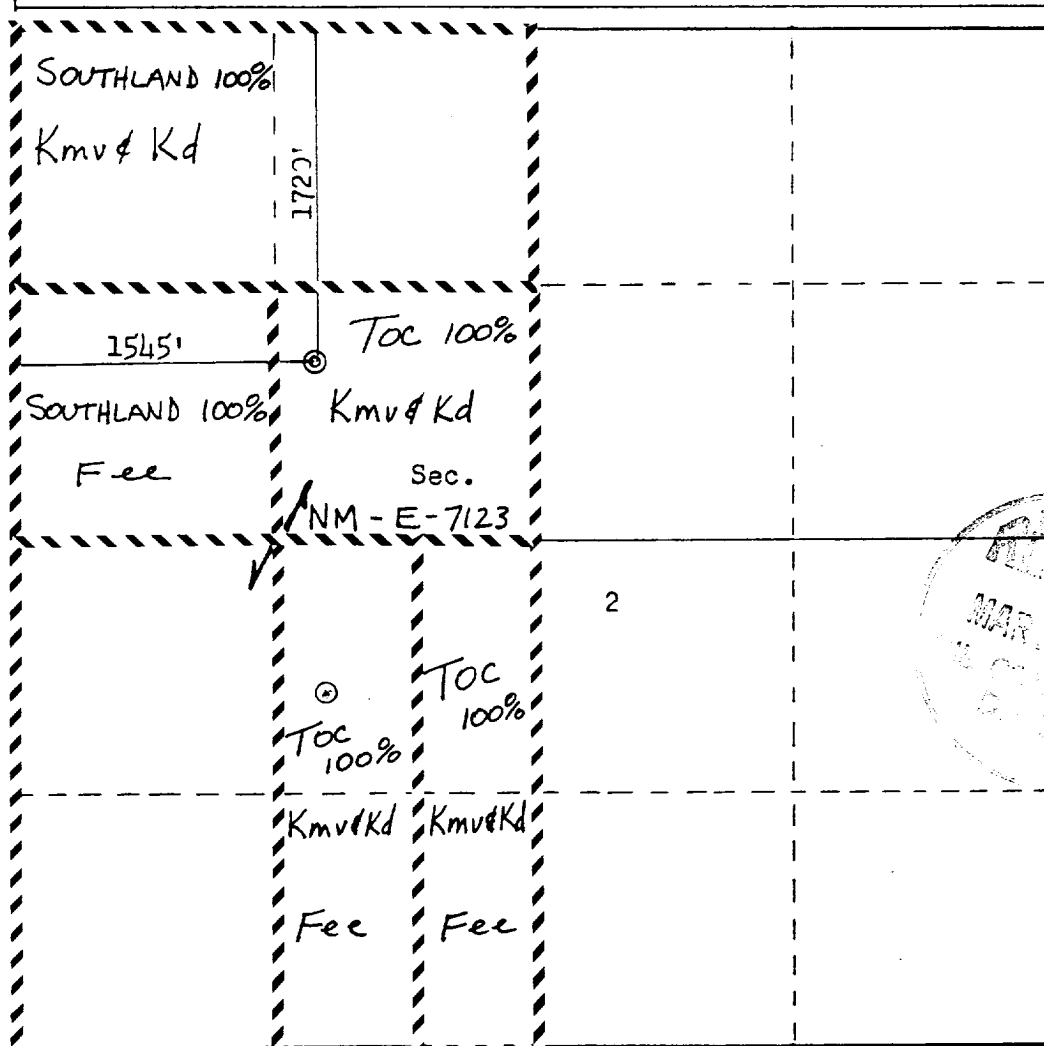 SOUTHLAND 100%
Kmv & Kd
1720'
1545'
TOC 100%
SOUTHLAND 100%
Kmv & Kd
Fee
Sec.
NM-E-7123
2
MAR
TOC
100%
TOC
100%
Kmv & Kd
Kmv & Kd
Fee
Fee